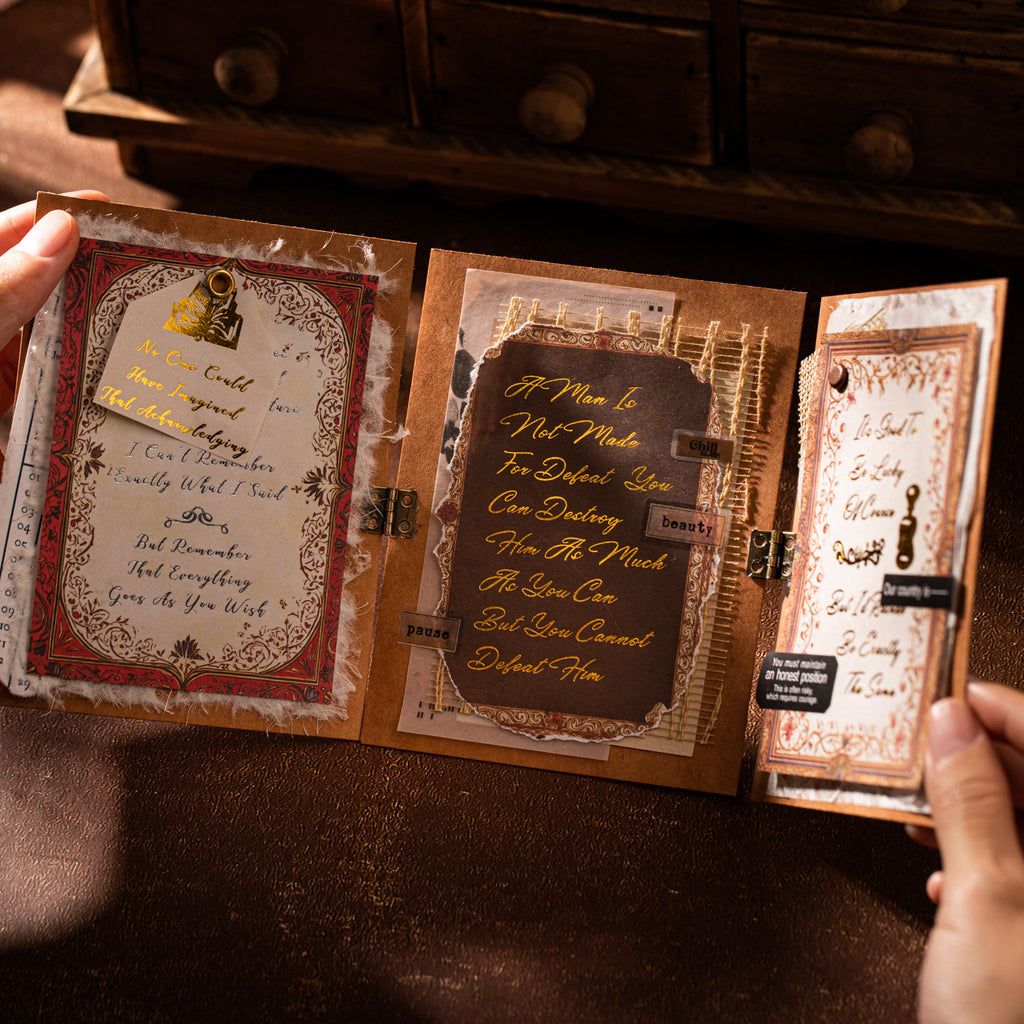 No One Could
Have Imagined
That Acknowledging
ture
I Can't Remember
Exactly What I Said
But Remember
That Everything
Goes As You Wish
03
04
05
09
10
11
12
29
A Man Is
Not Made
For Defeat You
Can Destroy
Him As Much
As You Can
But You Cannot
Defeat Him
chill
beauty
pause
It's Good To
Be Lucky
Of Course
But I'd
Be Exactly
The Same
Our country is
You must maintain
an honest position
This is often risky,
which requires courage.